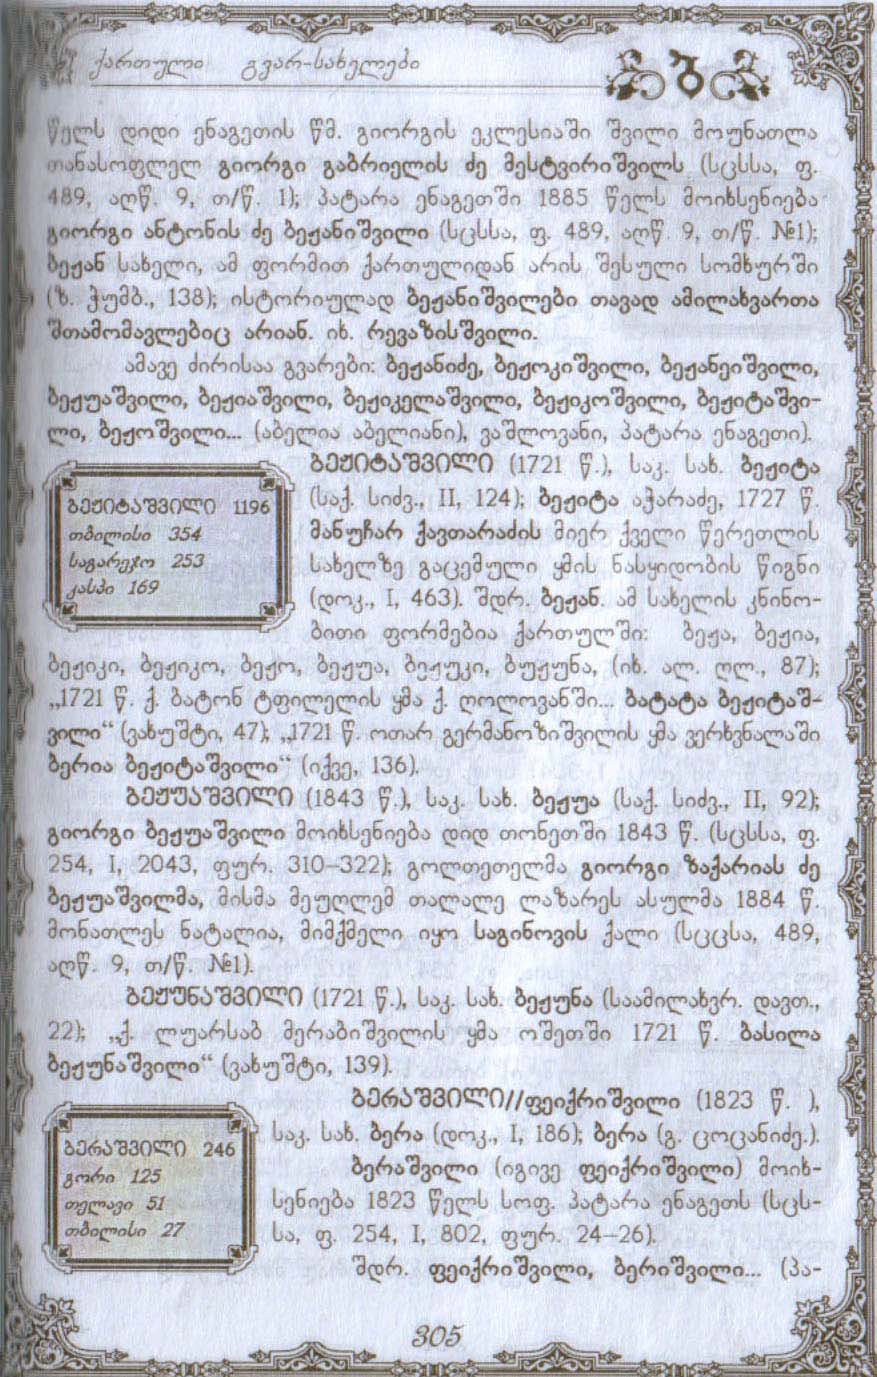 ქართული გვარ-სახელები
ბ
წელს დიდი ენაგეთის წმ. გიორგის ეკლესიაში შვილი მოუნათლა
თანასოფლელ გიორგი გაბრიელის ძე მესტვირიშვილს (სცსსა, ფ.
489, აღწ. 9, თ/წ. 1); პატარა ენაგეთში 1885 წელს მოიხსენიება
გიორგი ანტონის ძე ბეჟანიშვილი (სცსსა, ფ. 489, აღწ. 9, თ/წ. №1);
ბეჟან სახელი, ამ ფორმით ქართულიდან არის შესული სომხურში
(ზ. ჭუმბ., 138); ისტორიულად ბეჟანიშვილები თავად ამილახვართა
შთამომავლებიც არიან. იხ. რევაზისშვილი.
ამავე ძირისაა გვარები: ბეჟანიძე, ბეჟოკიშვილი, ბეჟანეიშვილი,
ბეჟუაშვილი, ბეჟიაშვილი, ბეჟიკელაშვილი, ბეჟიკოშვილი, ბეჟიტაშვი-
ლი, ბეჟოშვილი... (აბელია აბელიანი), ვაშლოვანი, პატარა ენაგეთი).
ბეჟიტაშვილი (1721 წ.), საკ. სახ. ბეჟიტა
(საქ. სიძვ., II, 124); ბეჟიტა აჭარაძე, 1727 წ.
მანუჩარ ქავთარაძის მიერ ქველი წერეთლის
სახელზე გაცემული ყმის ნასყიდობის წიგნი
(დოკ., I, 463). შდრ. ბეჟან. ამ სახელის კნინო-
ბითი ფორმებია ქართულში: ბეჟა, ბეჟია,
ბეჟიტაშვილი 1196
თბილისი 354
საგარეჯო 253
კასპი 169
ბეჟიკი, ბეჟიკო, ბეჟო, ბეჟუა, ბეჟუკი, ბუჟუნა, (იხ. ალ. ღლ., 87);
„1721 წ. ქ. ბატონ ტფილელის ყმა ქ. ღოლოვანში... ბატატა ბეჟიტაშ-
ვილი“ (ვახუშტი, 47); „1721 წ. ოთარ გერმანოზიშვილის ყმა ვერხვნალაში
ბერია ბეჟიტაშვილი“ (იქვე, 136).
ბეჟუაშვილი (1843 წ.), საკ. სახ. ბეჟუა (საქ. სიძვ., II, 92);
გიორგი ბეჟუაშვილი მოიხსენიება დიდ თონეთში 1843 წ. (სცსსა, ფ.
254, I, 2043, ფურ. 310–322); გოლთეთელმა გიორგი ზაქარიას ძე
ბეჟუაშვილმა, მისმა მეუღლემ თალალე ლაზარეს ასულმა 1884 წ.
მონათლეს ნატალია, მიმქმელი იყო საგინოვის ქალი (სცცსა, 489,
აღწ. 9, თ/წ. №1).
ბეჟუნაშვილი (1721 წ.), საკ. სახ. ბეჟუნა (საამილახვრ. დავთ.,
22); „ქ. ლუარსაბ მერაბიშვილის ყმა ოშეთში 1721 წ. ბასილა
ბეჟუნაშვილი“ (ვახუშტი, 139).
ბერაშვილი//ფეიქრიშვილი (1823 წ. ),
საკ. სახ. ბერა (დოკ., I, 186); ბერა (გ. ცოცანიძე.).
ბერაშვილი (იგივე ფეიქრიშვილი) მოიხ-
სენიება 1823 წელს სოფ. პატარა ენაგეთს (სცს-
სა, ფ. 254, I, 802, ფურ. 24–26).
შდრ. ფეიქრიშვილი, ბერიშვილი... (პა-
ბერაშვილი 246
გორი 125
თელავი 51
თბილისი 27
305